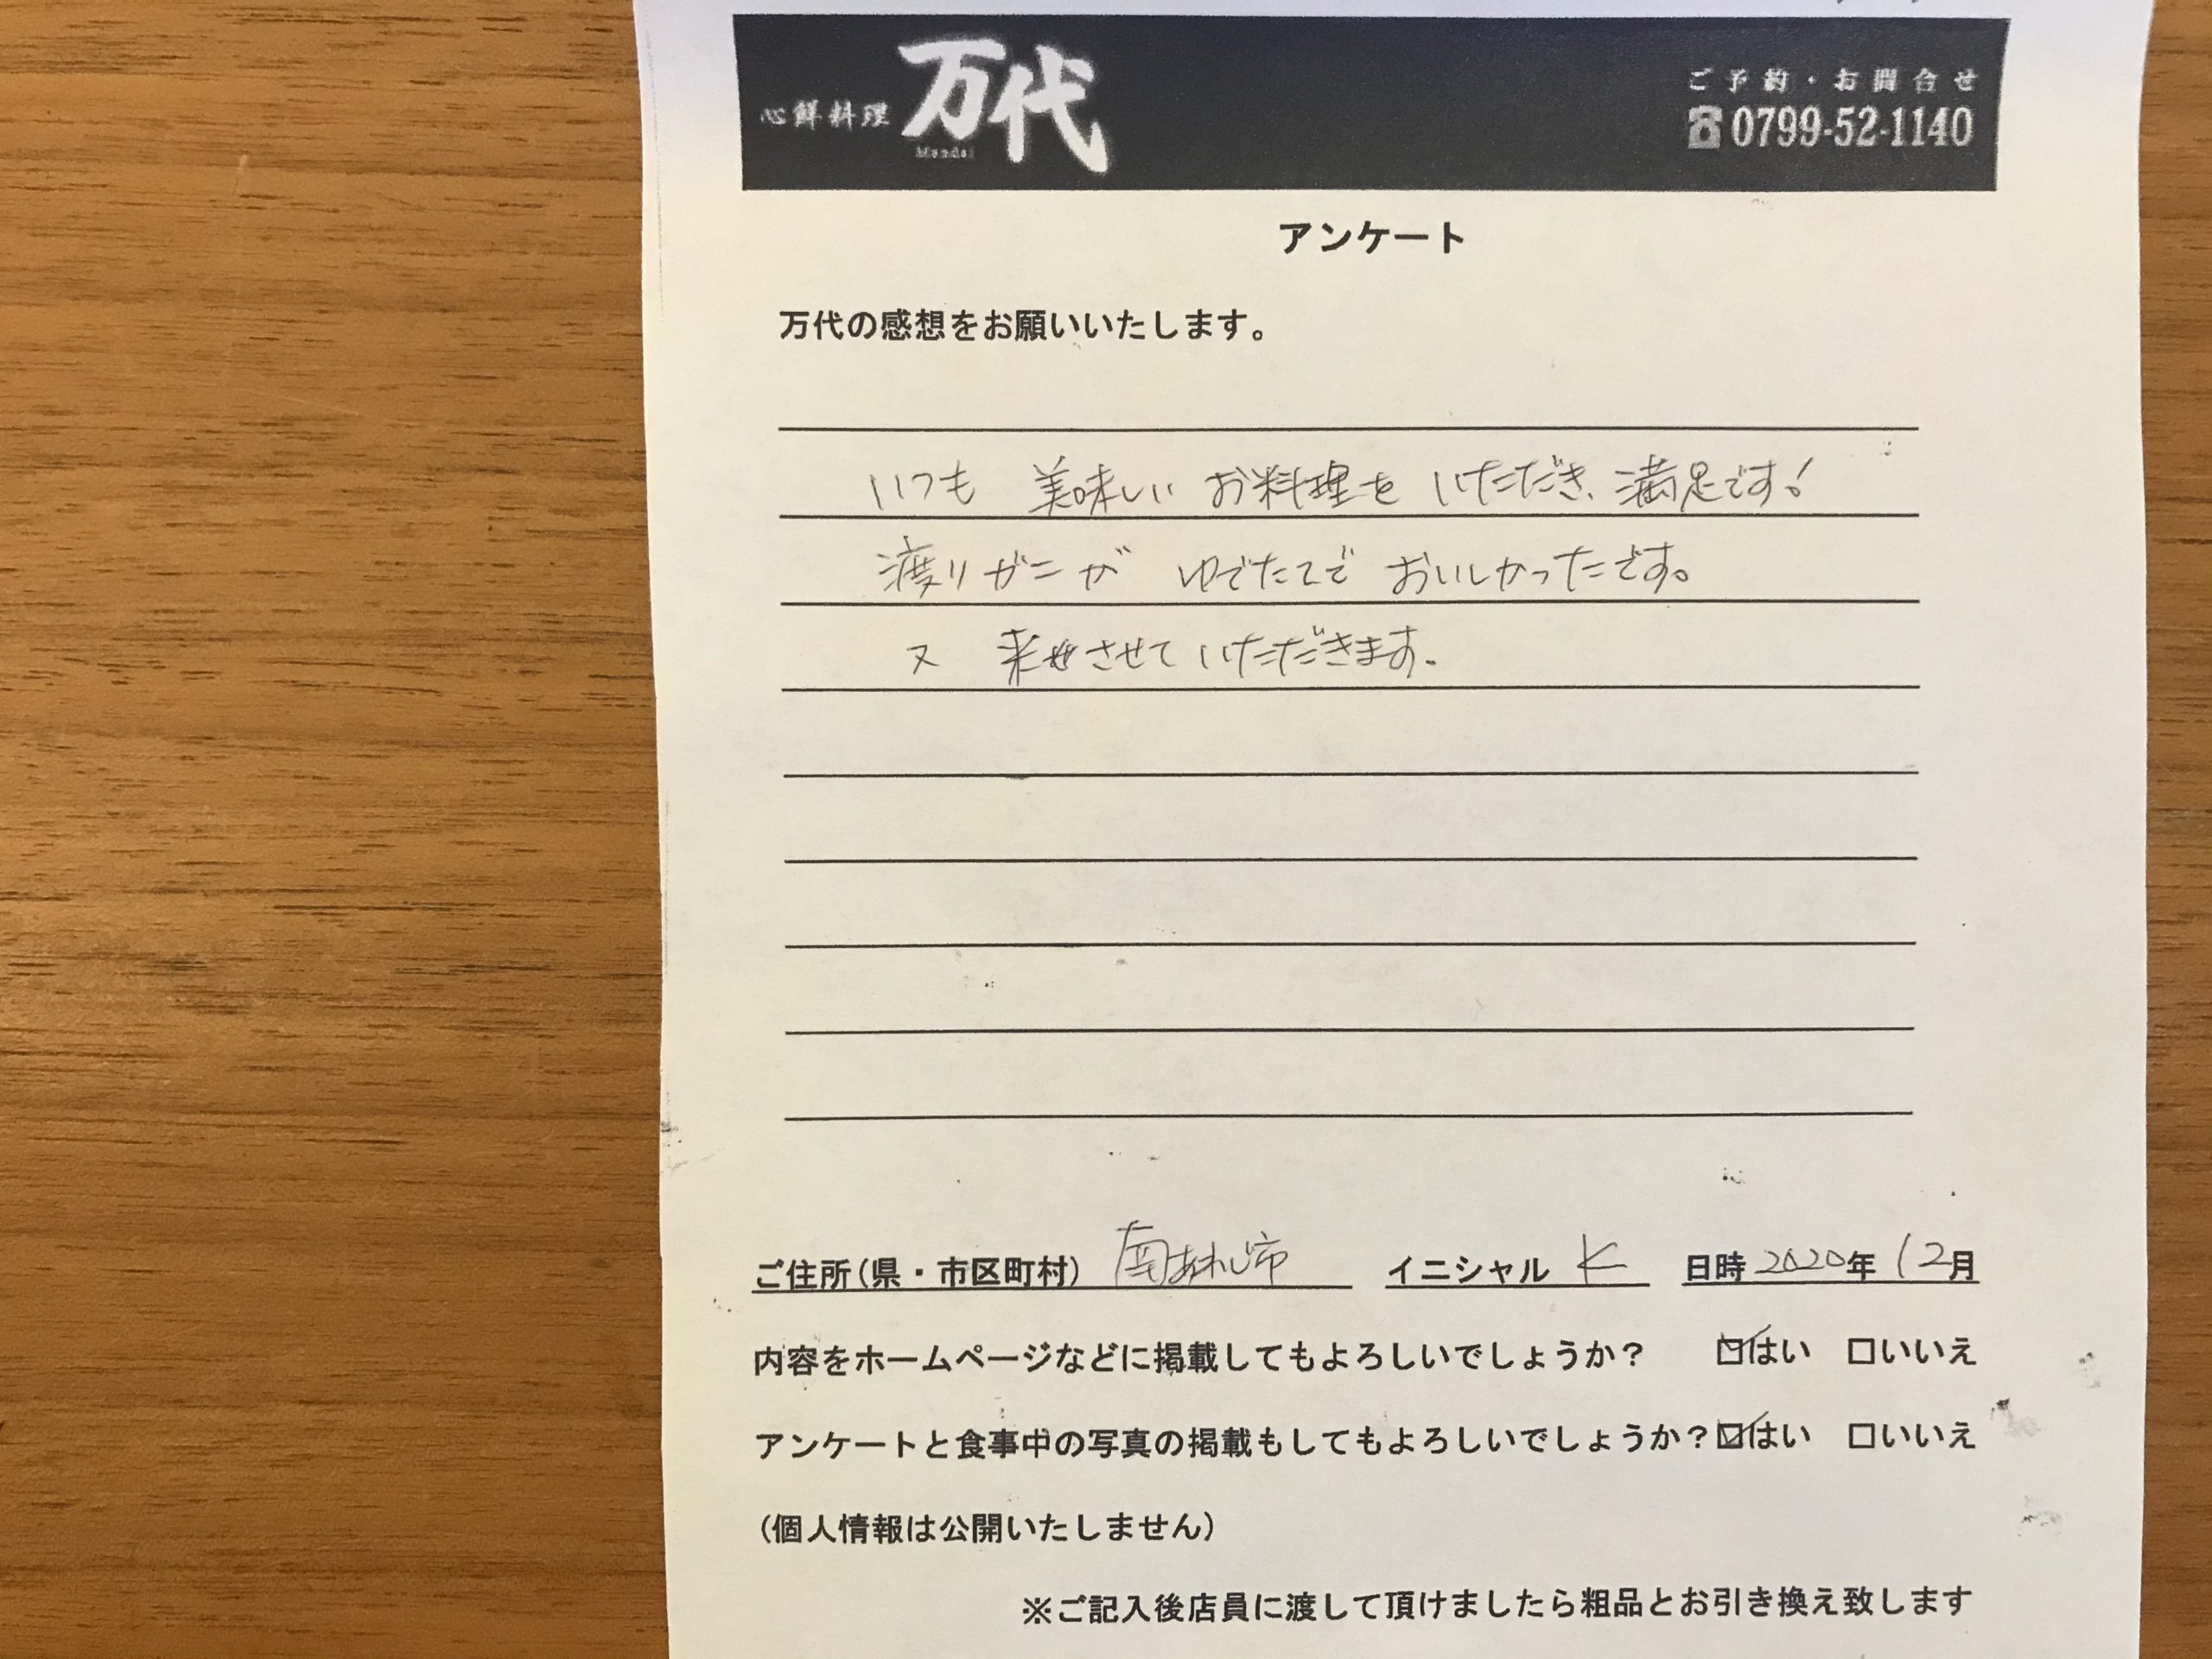 心鮮料理 万代
Mandai
ご予約・お問合せ
☎0799-52-1140
アンケート
万代の感想をお願いいたします。
いつも 美味しい お料理を いただき、満足です!
渡りガニが ゆでたてで おいしかったです。
又 来させて いただきます。
ご住所(県・市区町村) 南あわじ市 イニシャル K 日時 2020年 12月
内容をホームページなどに掲載してもよろしいでしょうか? ☑はい □いいえ
アンケートと食事中の写真の掲載もしてもよろしいでしょうか?☑はい □いいえ
(個人情報は公開いたしません)
※ご記入後店員に渡して頂けましたら粗品とお引き換え致します